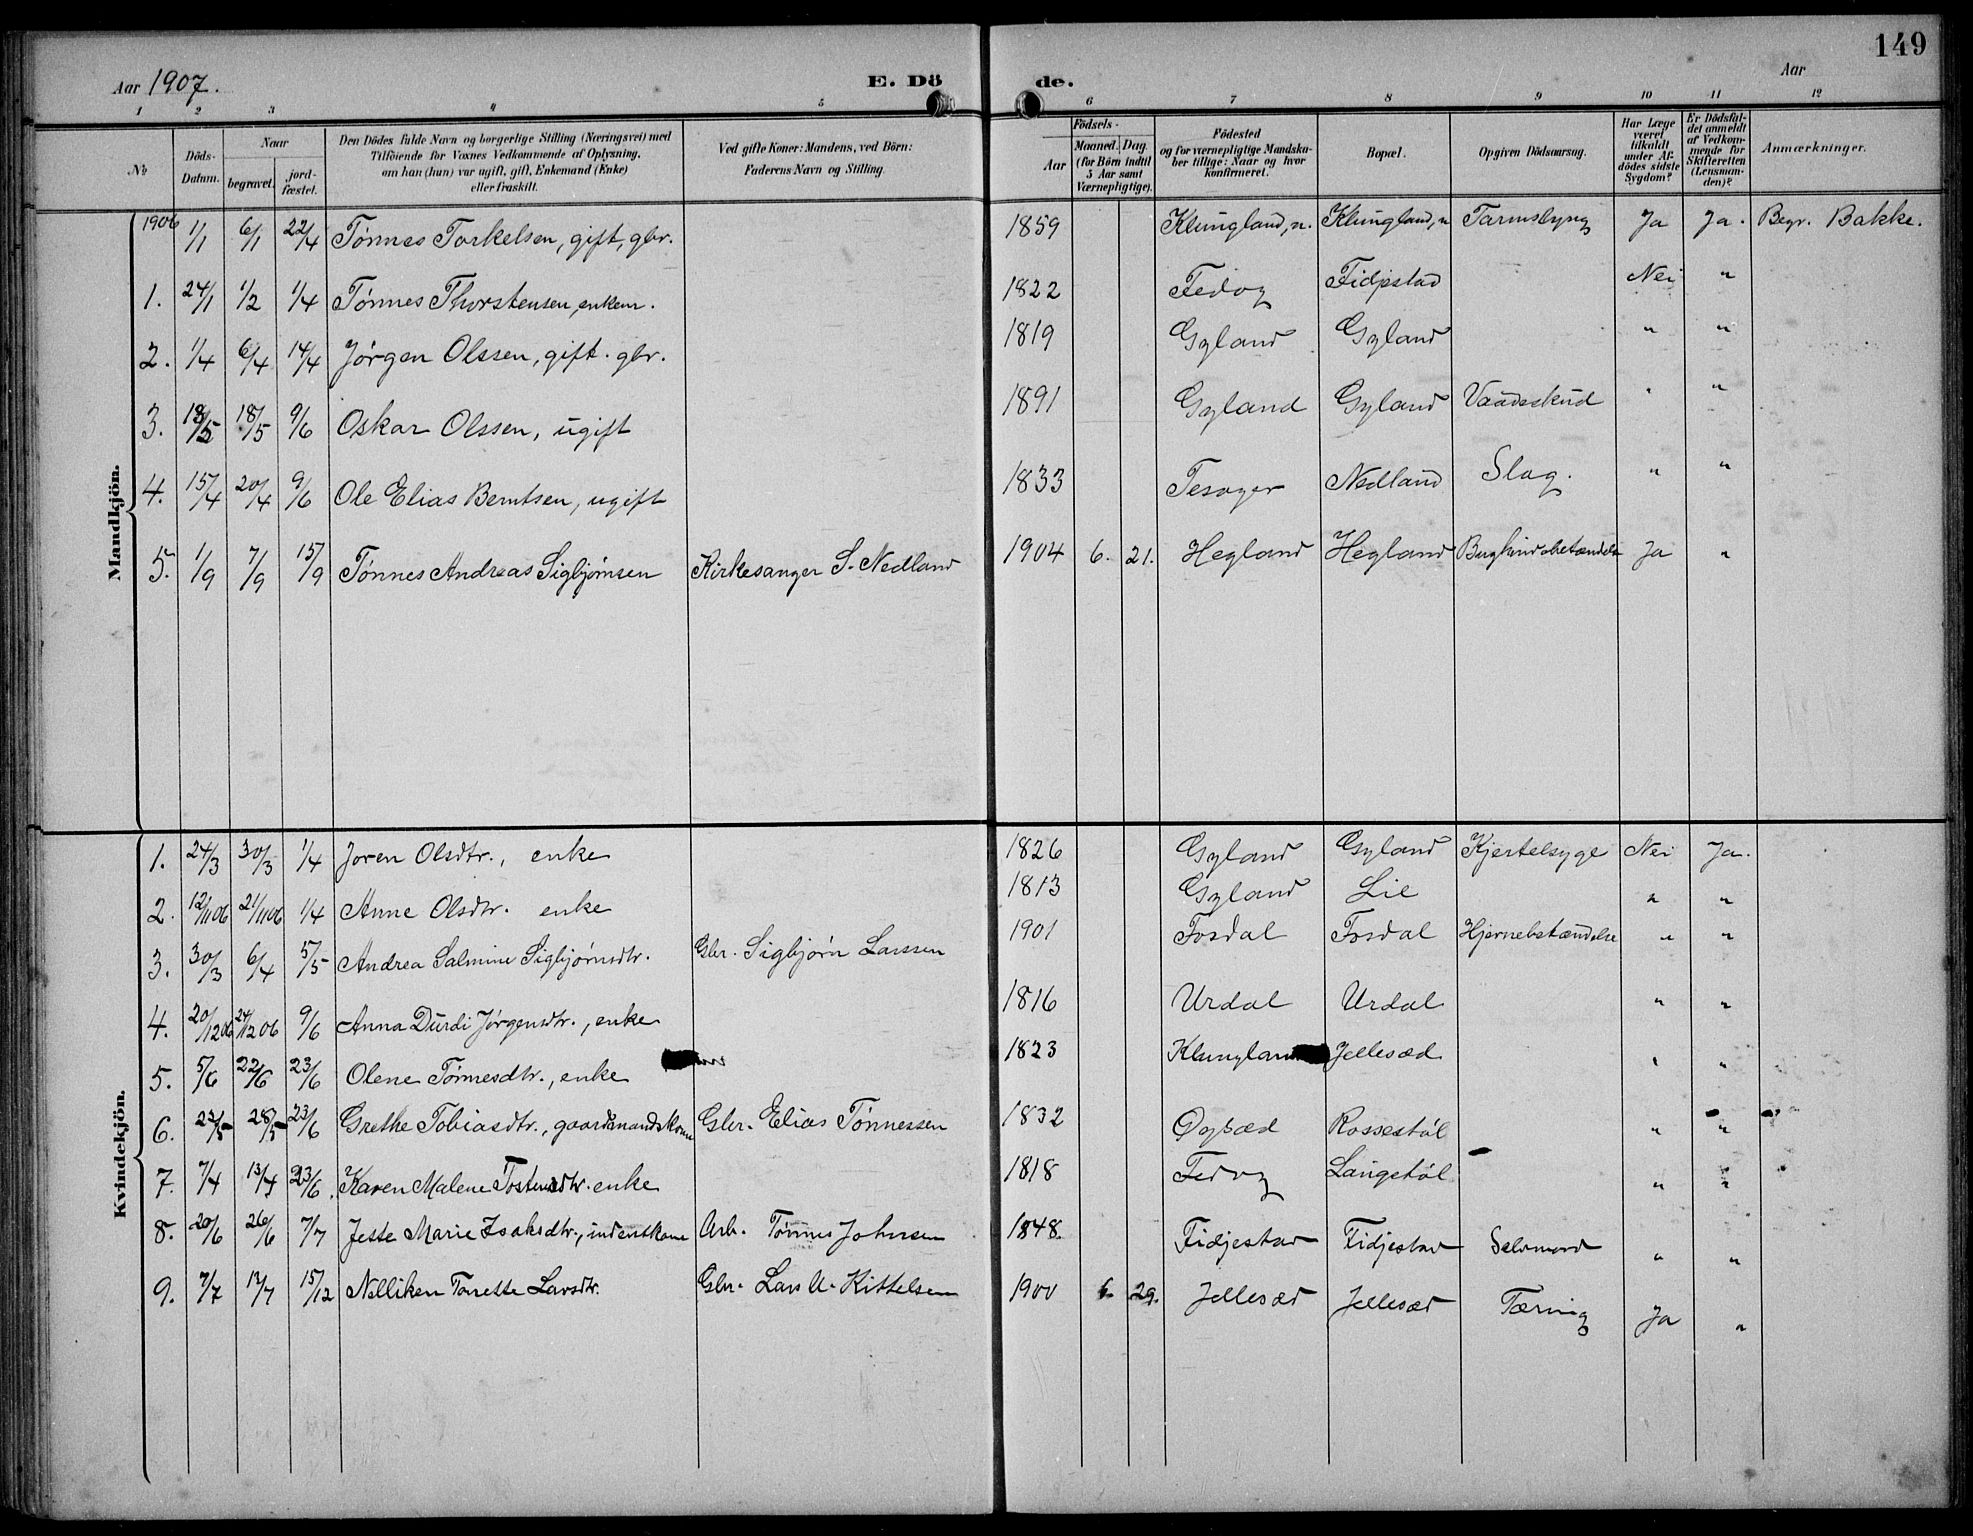 149
Aar 1907. E. Dö de. Aar
1 2 3 4 5 6 7 8 9 10 11 12
No
Döds-Datum.
Naar
begravet.
jordfæstet.
Den Dödes fulde Navn og borgerlige Stilling (Næringsvei) med
Tilföiende for Voxnes Vedkommende af Oplysning,
om han (hun) var ugift, gift, Enkemand (Enke)
eller fraskilt.
Ved gifte Koner: Mandens, ved Börn:
Faderens Navn og Stilling
Aar
Födsels-
Maaned. Dag.
(for Börn indtil
5 Aar samt
Værnepligtige).
Födested
og for værnepligtige Mandska-
ber tillige: Naar og hvor
konfirmeret.
Bopæl.
Opgiven Dödsaarsag.
Har Læge
været
tilkaldt
under Af-
dödes sidste
Sygdom?
Er Dödsfal-
det anmeldt
af Vedkom-
mende for
Skifteretten
(Lensman-
den)?
Anmærkninger.
Mandkjön.
1906 1/1 6/1 22/4 Tønnes Torkelsen, gift, gbr. 1859 Klungland, n. Klungland, n Tarmslyng Ja Ja. Begr. Bakke.
1. 24/1 1/2 1/4 Tønnes Thorstensen, enkem. 1822 Fedog Fidjestad Nei "
2. 1/4 6/4 14/4 Jørgen Olssen, gift. gbr. 1819 Gyland Gyland " "
3. 18/5 9/6 Oskar Olssen, ugift 1891 Gyland Gyland Vaadeskud " "
4. 15/4 20/4 9/6 Ole Elias Berntsen, ugift 1833 Tesager Nedland Slag. " "
5. 1/9 7/9 15/9 Tønnes Andreas Sigbjørnsen Kirkesanger S. Nedland 1904 6. 21. Hegland Hegland Bughindebetændelse Ja "
Kvindekjön.
1. 24/3 30/3 1/4 Joren Olsdtr., enke 1826 Gyland Gyland Kjertelsyge Nei Ja.
2. 12/11 06 21/11 06 1/4 Anne Olsdtr. enke 1813 Gyland Lie " "
3. 30/3 6/4 5/5 Andrea Salmine Sigbjørnsdtr. Gbr. Sigbjørn Larssen 1901 Fosdal Fosdal Hjernebetændelse " "
4. 20/12 06 24/12 06 9/6 Anna Durdi Jørgensdtr., enke 1816 Urdal Urdal " "
5. 5/6 22/6 23/6 Olene Tønnesdtr., enke 1823 Klungland Jellesæd " "
6. 28/5 23/6 Grethe Tobiasdtr., gaardmandskone Gbr. Elias Tønnessen 1832 Øysæd Rossestøl " "
7. 7/4 13/4 23/6 Karen Malene Tostensdtr. enke 1818 Fedog Langstøl " "
8. 20/6 26/6 7/7 Jesse Marie Isaksdtr., inderstkone Arb. Tønnes Johnsen 1848. Fidjestad Fidjestad Selvmord " "
9. 7/7 13/7 15/12 Nelliken Tonette Larsdtr. Gbr. Lars U. Kittelsen 1900 6. 29. Jellesæd Jellesæd Tæring Ja "